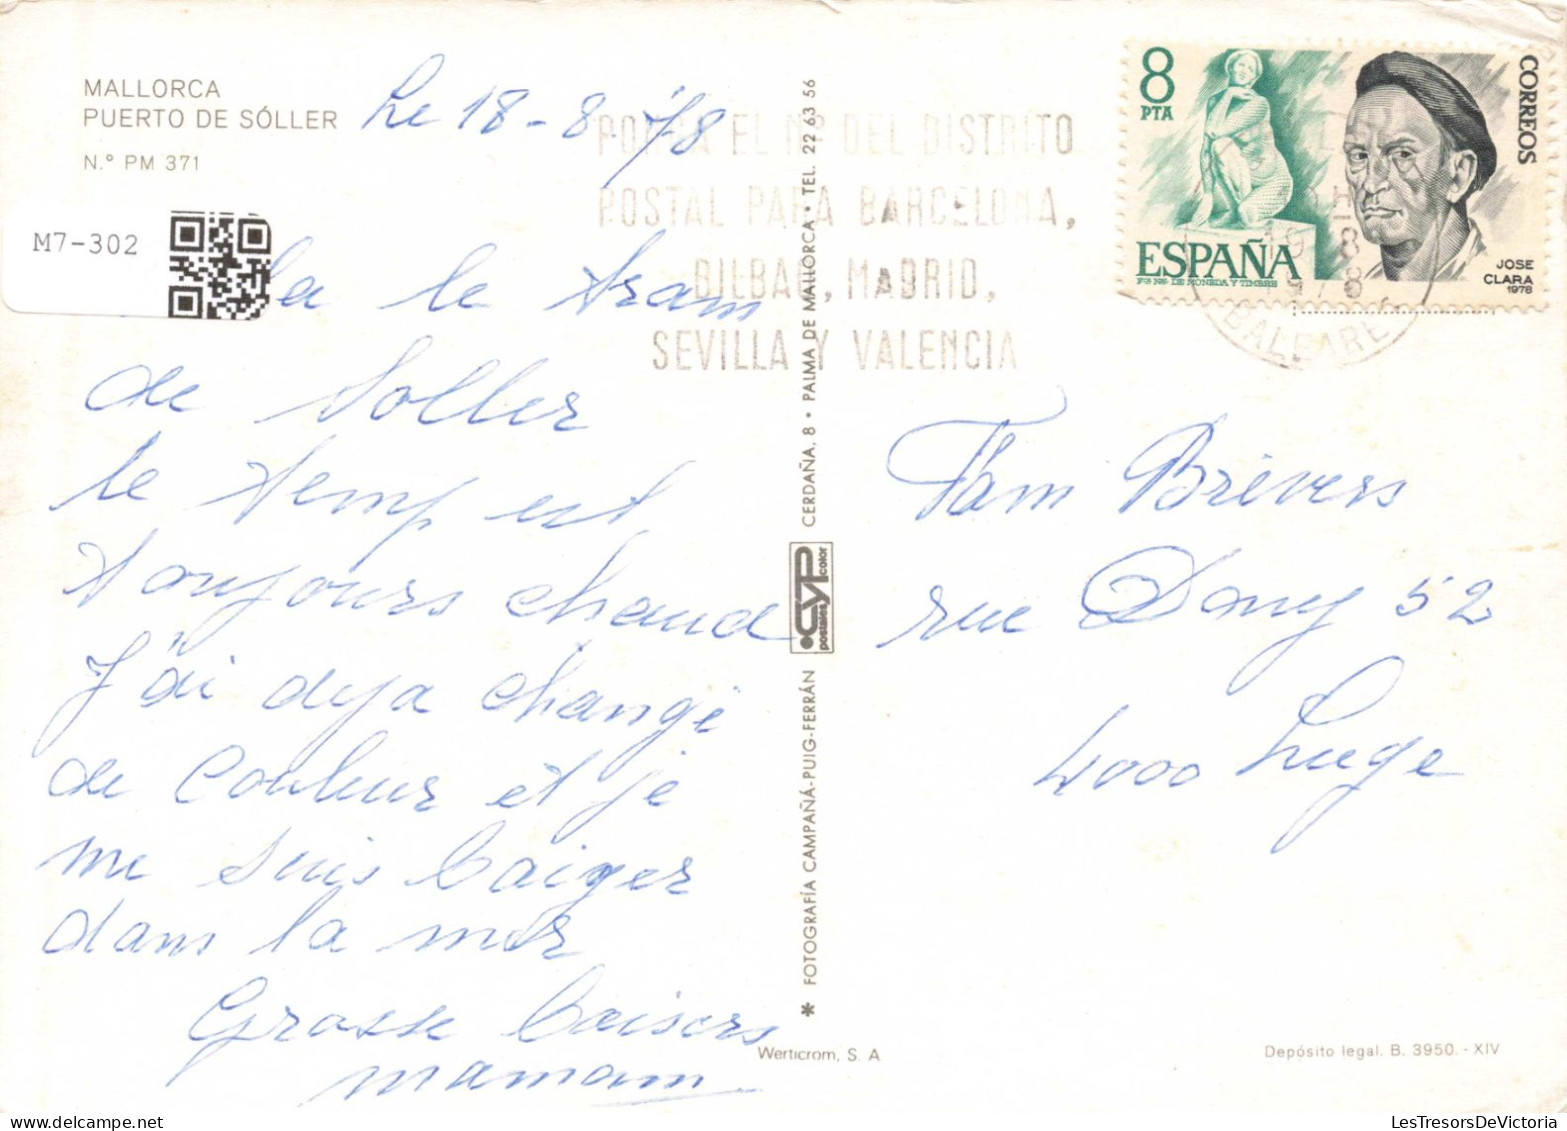 MALLORCA
PUERTO DE SÓLLER
N.º PM 371
Le 18-8-78
M7-302
la le tram
de Soller
le temp est
toujours chaud
J'ai deja changé
de couleur et je
me suis baiger
dans la mer
Grosse baisers
mamam
FOTOGRAFÍA CAMPAÑÁ-PUIG-FERRÁN
postales CYP color
CERDAÑA, 8 • PALMA DE MALLORCA • TEL. 22 63 56
Werticrom, S. A.
PONGA EL Nº DEL DISTRITO
POSTAL PARA BARCELONA,
BILBAO, MADRID,
SEVILLA Y VALENCIA
8
PTA
CORREOS
ESPAÑA
JOSE
CLARA
1978
F.N. DE MONEDA Y TIMBRE
19 8
1978
BALEARES
Fam Brévers
rue Dony 52
4000 Liege
Depósito legal. B. 3950. - XIV
LesTresorsDeVictoria